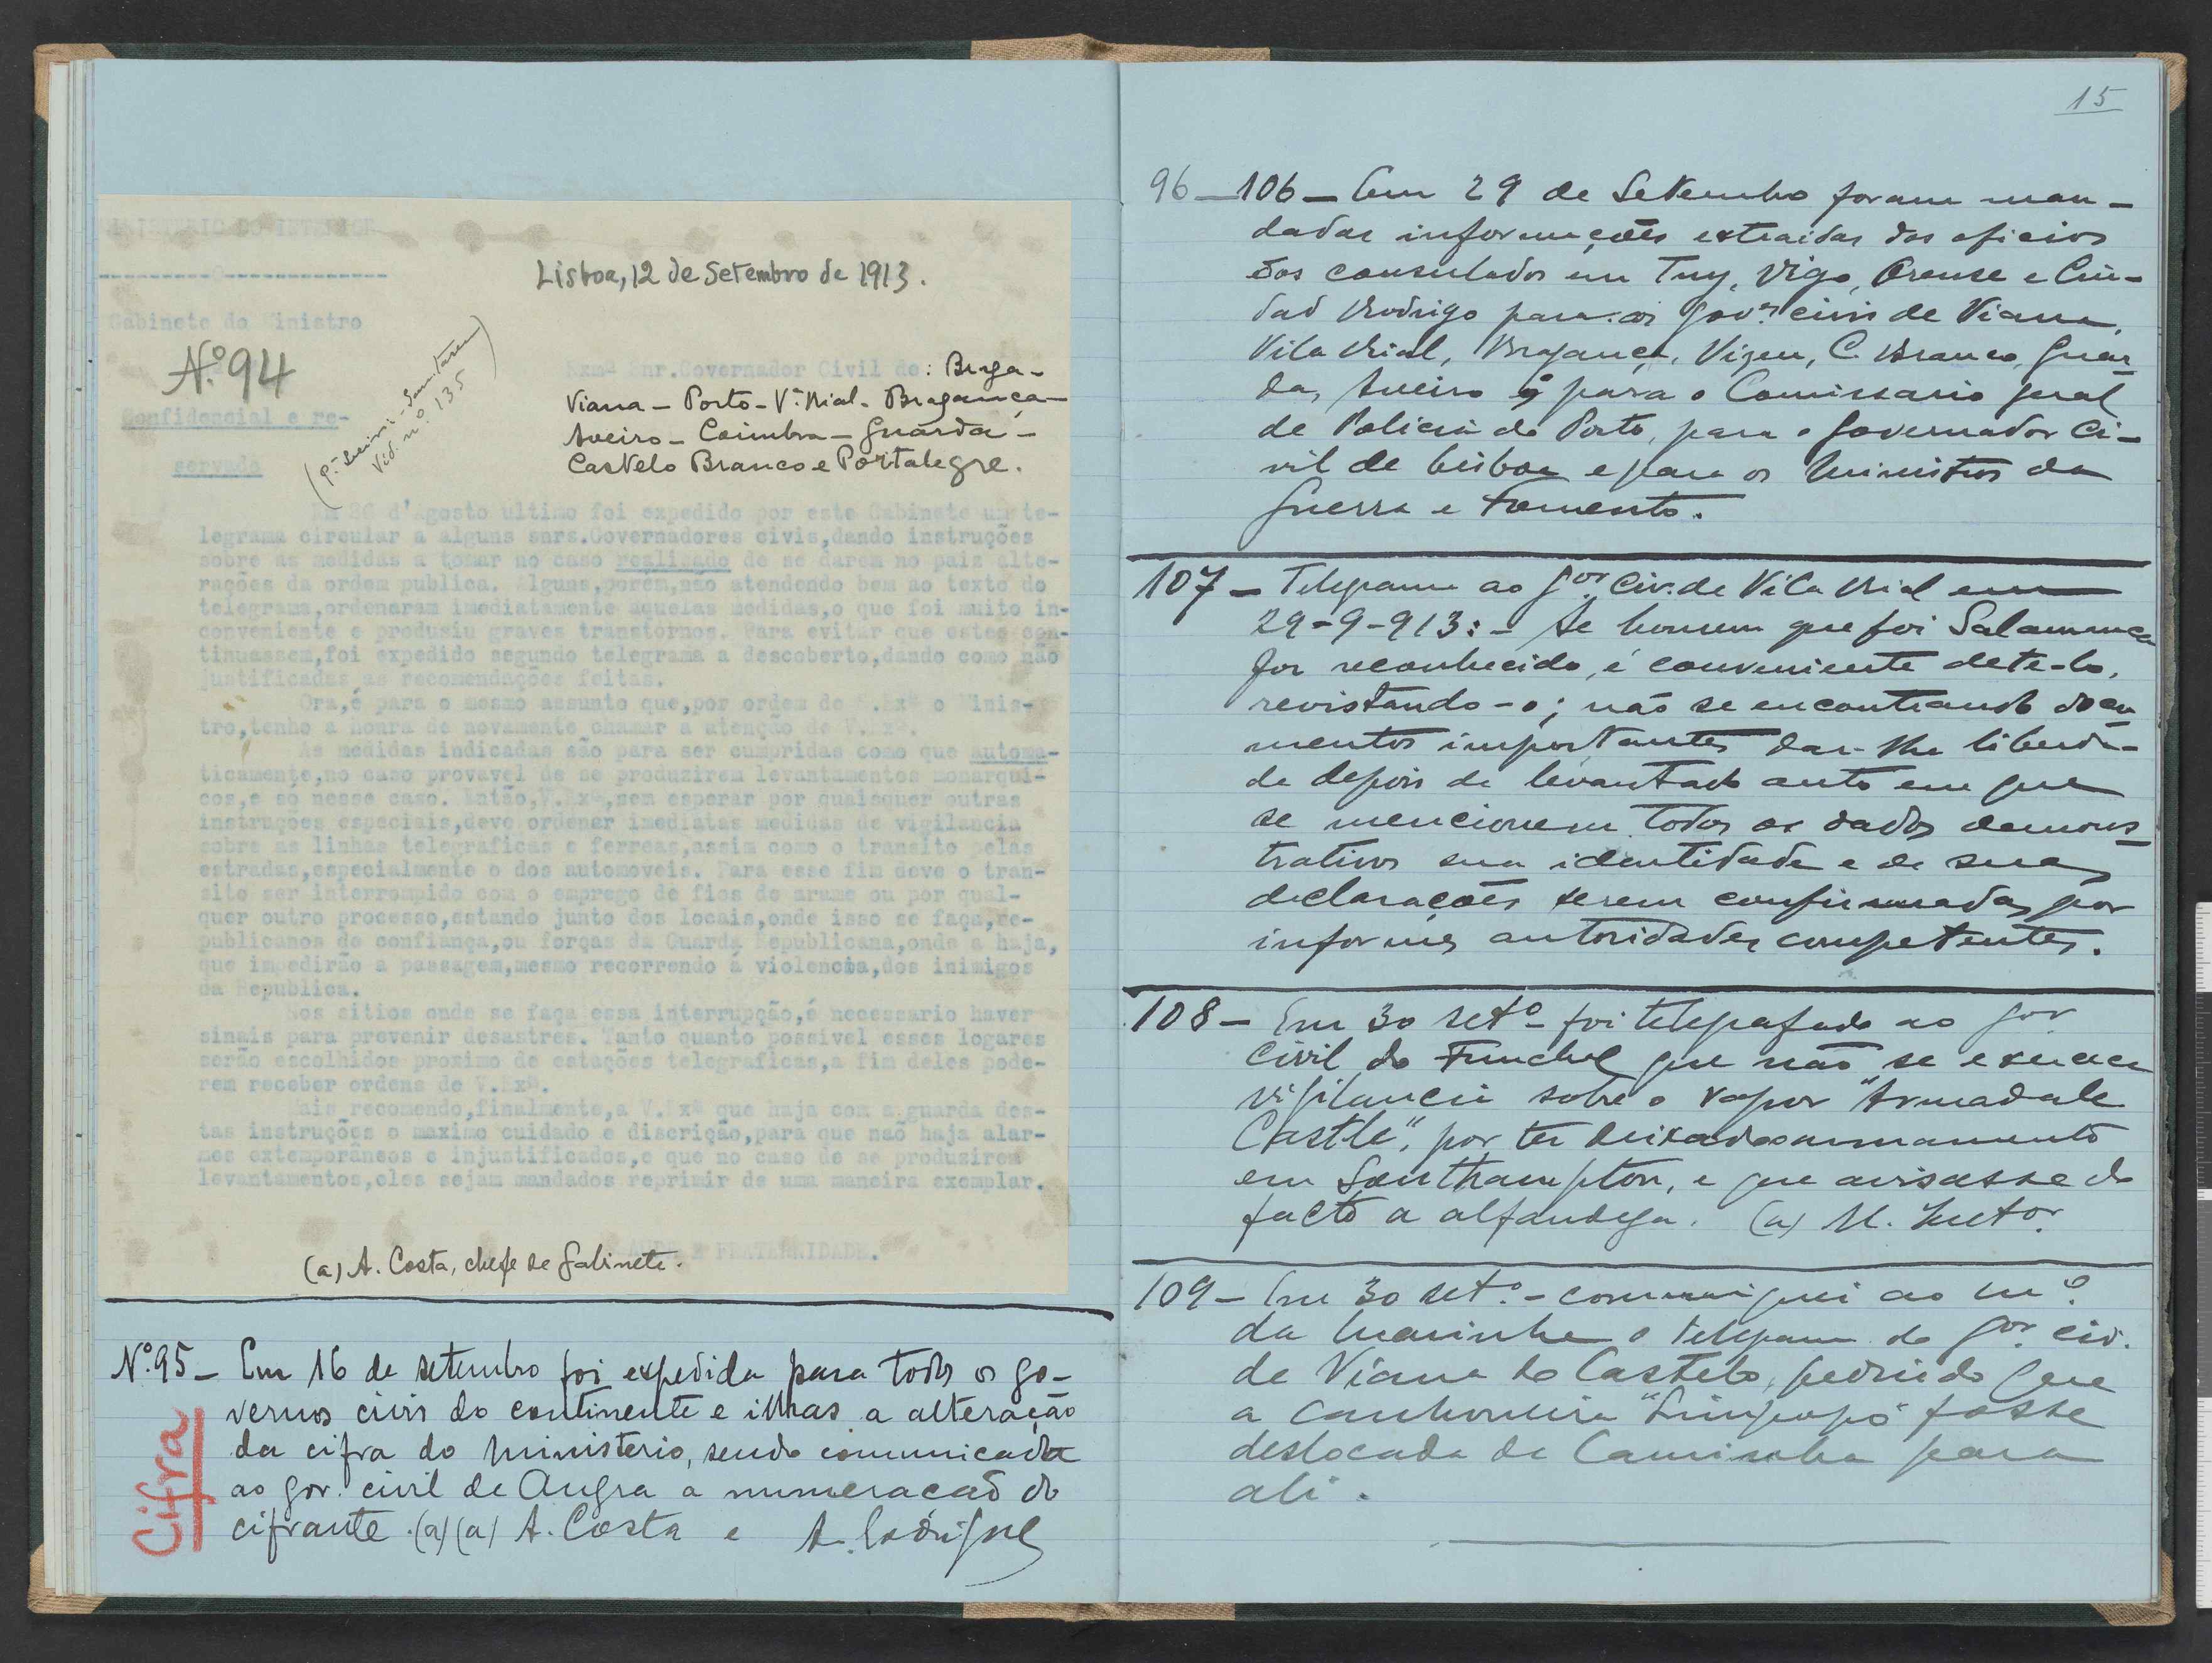 MINISTERIO DO INTERIOR
Lisboa, 12 de Setembro de 1913.
Gabinete do Ministro
Nº. 94
(P.ª Leiria - Santarem
Vid. nº. 135)
Confidencial e re-
servado
Exmº Snr. Governador Civil de: Braga -
Viana - Porto - Vª. Rial - Bragança -
Aveiro - Coimbra - Guarda -
Castelo Branco e Portalegre.
Em 26 d'Agosto ultimo foi expedido por este Gabinete um te-
legrama circular a alguns snrs. Governadores civis, dando instruções
sobre as medidas a tomar no caso realisado de se darem no paiz alte-
rações da ordem publica. Alguns, porém, não atendendo bem ao texto do
telegrama, ordenaram imediatamente aquelas medidas, o que foi muito in-
conveniente e produsiu graves transtornos. Para evitar que estes con-
tinuassem, foi expedido segundo telegrama a descoberto, dando como não
justificadas as recomendações feitas.
Ora, é para o mesmo assunto que, por ordem de S. Exª o Minis-
tro, tenho a honra de novamente chamar a atenção de V. Exª.
As medidas indicadas são para ser cumpridas como que automa-
ticamente, no caso provavel de se produzirem levantamentos monarqui-
cos, e só nesse caso. Então, V. Exª, sem esperar por quaisquer outras
instruções especiais, deve ordenar imediatas medidas de vigilancia
sobre as linhas telegraficas e ferreas, assim como o transito pelas
estradas, especialmente o dos automoveis. Para esse fim deve o tran-
sito ser interrompido com o emprego de fios de arame ou por qual-
quer outro processo, estando junto dos locais, onde isso se faça, re-
publicanos de confiança, ou forças da Guarda Republicana, onde a haja,
que impedirão a passagem, mesmo recorrendo á violencia, dos inimigos
da Republica.
Nos sitios onde se faça essa interrupção, é necessario haver
sinais para prevenir desastres. Tanto quanto possivel esses logares
serão escolhidos proximo de estações telegraficas, a fim deles pode-
rem receber ordens de V. Exª.
Mais recomendo, finalmente, a V. Exª que haja com a guarda des-
tas instruções o maximo cuidado e discrição, para que naõ haja alar-
mes extemporaneos e injustificados, e que no caso de se produzirem
levantamentos, eles sejam mandados reprimir de uma maneira exemplar.
SAUDE E FRATERNIDADE.
(a) A. Costa, chefe de Gabinete.
Nº. 95 - Em 16 de setembro foi expedida para todos os go-
vernos civis do continente e ilhas a alteração
da cifra do ministerio, sendo comunicada
ao gov. civil de Angra a numeracaõ do
cifrante. (a)(a) A. Costa e A.
Cifra
15
96 - 106 - Em 29 de Setembro foram man-
dadas informações extraidas dos oficios
dos consulados em Tuy, Vigo, Orense e Ciu-
dad Rodrigo para os gov.es civis de Viana,
Vila Rial, Bragança, Vizeu, C. Branco, Guar-
da, Aveiro e para o Comissario geral
de Policia do Porto, para o Governador Ci-
vil de Lisboa e para os Ministros da
Guerra e Fomento.
107 - Telegrama ao gor. civ. de Vila Rial em
29-9-913: - Se homem que foi Salamanca
for reconhecido, é conveniente dete-lo,
revistando-o; não se encontrando docu
mentos importantes dar-lhe liberda-
de depois de levantado auto em que
se mencionem todos os dados demons-
trativos sua identidade e de suas
declarações serem confirmadas por
informes autoridades competentes.
108 - Em 30 setº - foi telegrafado ao gov.
civil do Funchal que não se exerca
vigilancia sobre o vapor "Armadale
Castle", por ter deixado armamento
em Southampton, e que avisasse do
facto a alfandega. (a) M.
109 - Em 30 set.º - communiquei ao mº.
da Marinha o telegrama do gor. civ.
de Viana do Castelo, pedindo que
a canhoneira "Limpopo" fosse
deslocada de Caminha para
ali.